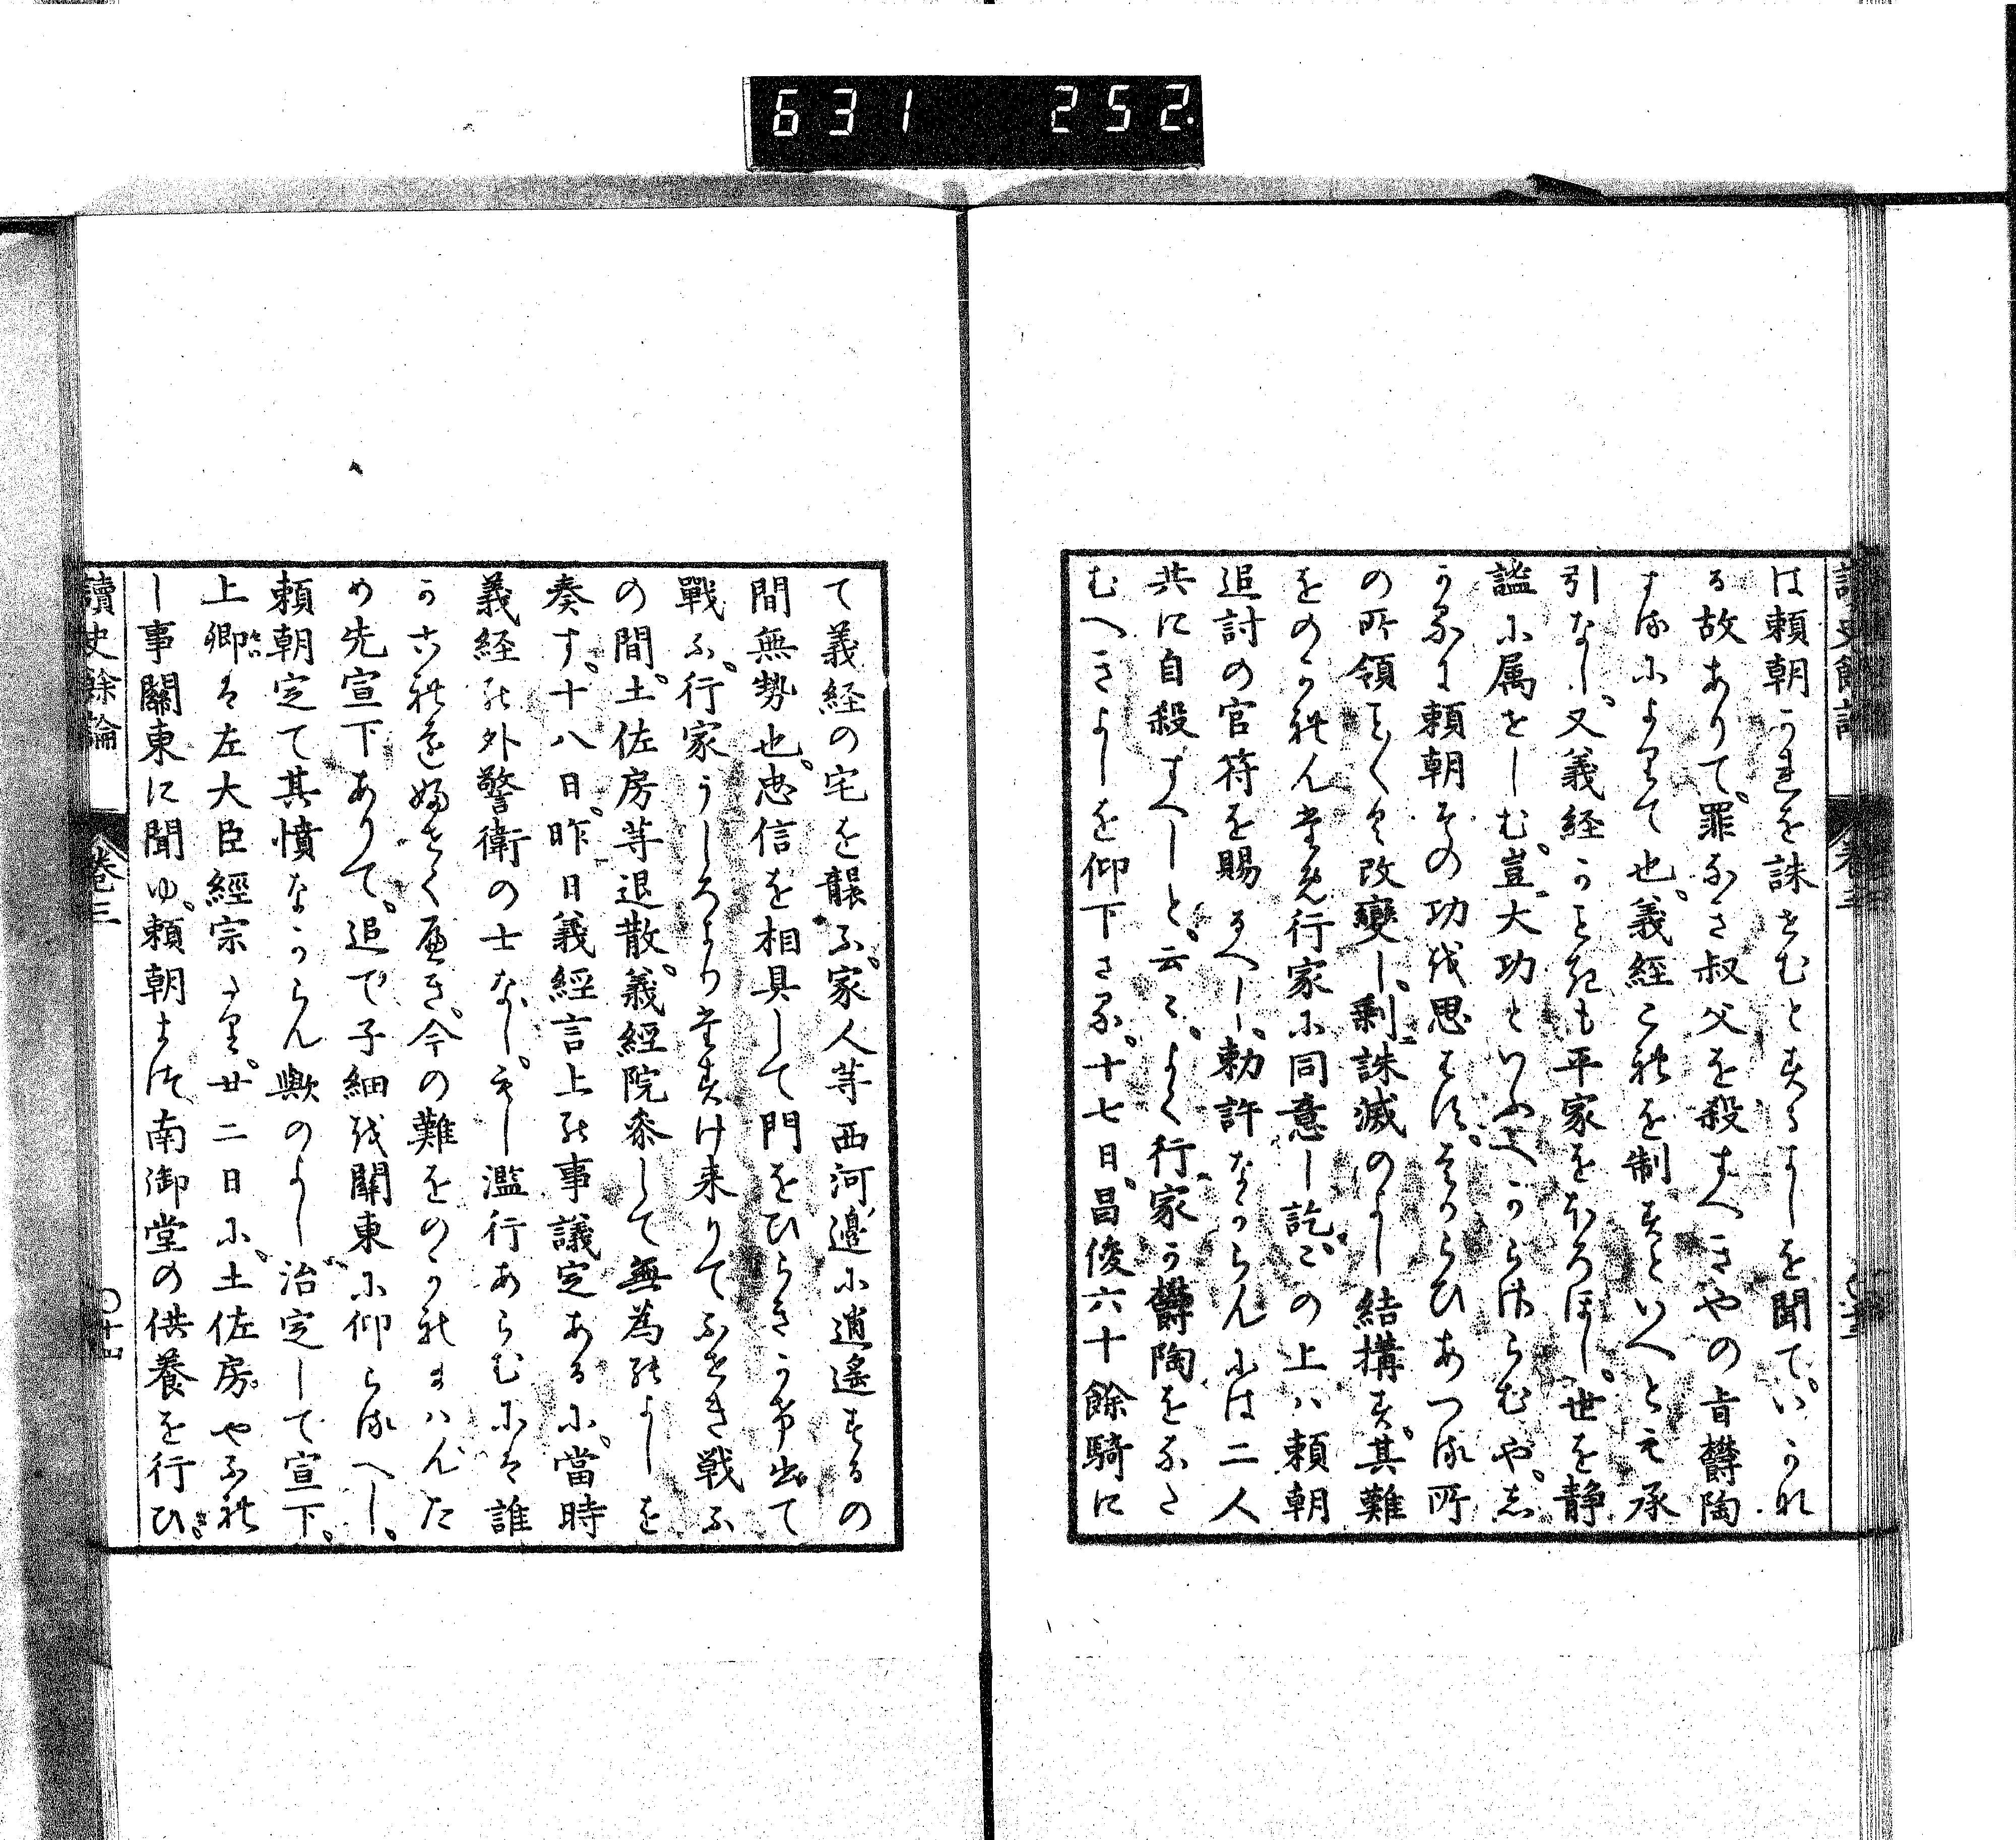 631 252.
は頼朝うれを誅せむとするよしを聞て、いかれ
る故ありて、罪なき叔父を殺すへきやの旨欝陶
するによりて也、義経これを制すといへとも承
引なし、又義経かしこも平家をほろほし、世を静
謐に属せしむ、豈大功といふへからさらむや、し
かるに頼朝その功を思はす、そからひあつる所
の所領ことく改變し、剰誅滅のよし結搆す、其難
をのかれんため行家に同意し訖、この上ハ頼朝
追討の官符を賜るへし、勅許なからんには二人
共に自殺すへしと云々、よく行家か欝陶をなた
むへきよしを仰下さる、十七日、昌俊六十餘騎に
て義経の宅を襲ふ、家人等西河邊に逍遙するの
間無勢也、忠信を相具して門をひらきかけ出て
戰ふ、行家うしろよりたすけ来りてふせき戦ふ
の間、土佐房等退散、義經院參して無為のよしを
奏す、十八日、昨日義經言上の事議定あるに、當時
義経の外警衛の士なし、もし濫行あらむには誰
かこれを婦せくへき、今の難をのかれまハんた
め先宣下ありて、追て子細を關東に仰らるへし、
頼朝定て其憤なからん歟のよし治定して宣下、
上卿は左大臣經宗たり、廿二日に、土佐房やふれ
し事關東に聞ゆ、頼朝まつ南御堂の供養を行ひ、
讀史餘論 巻三 〇十四